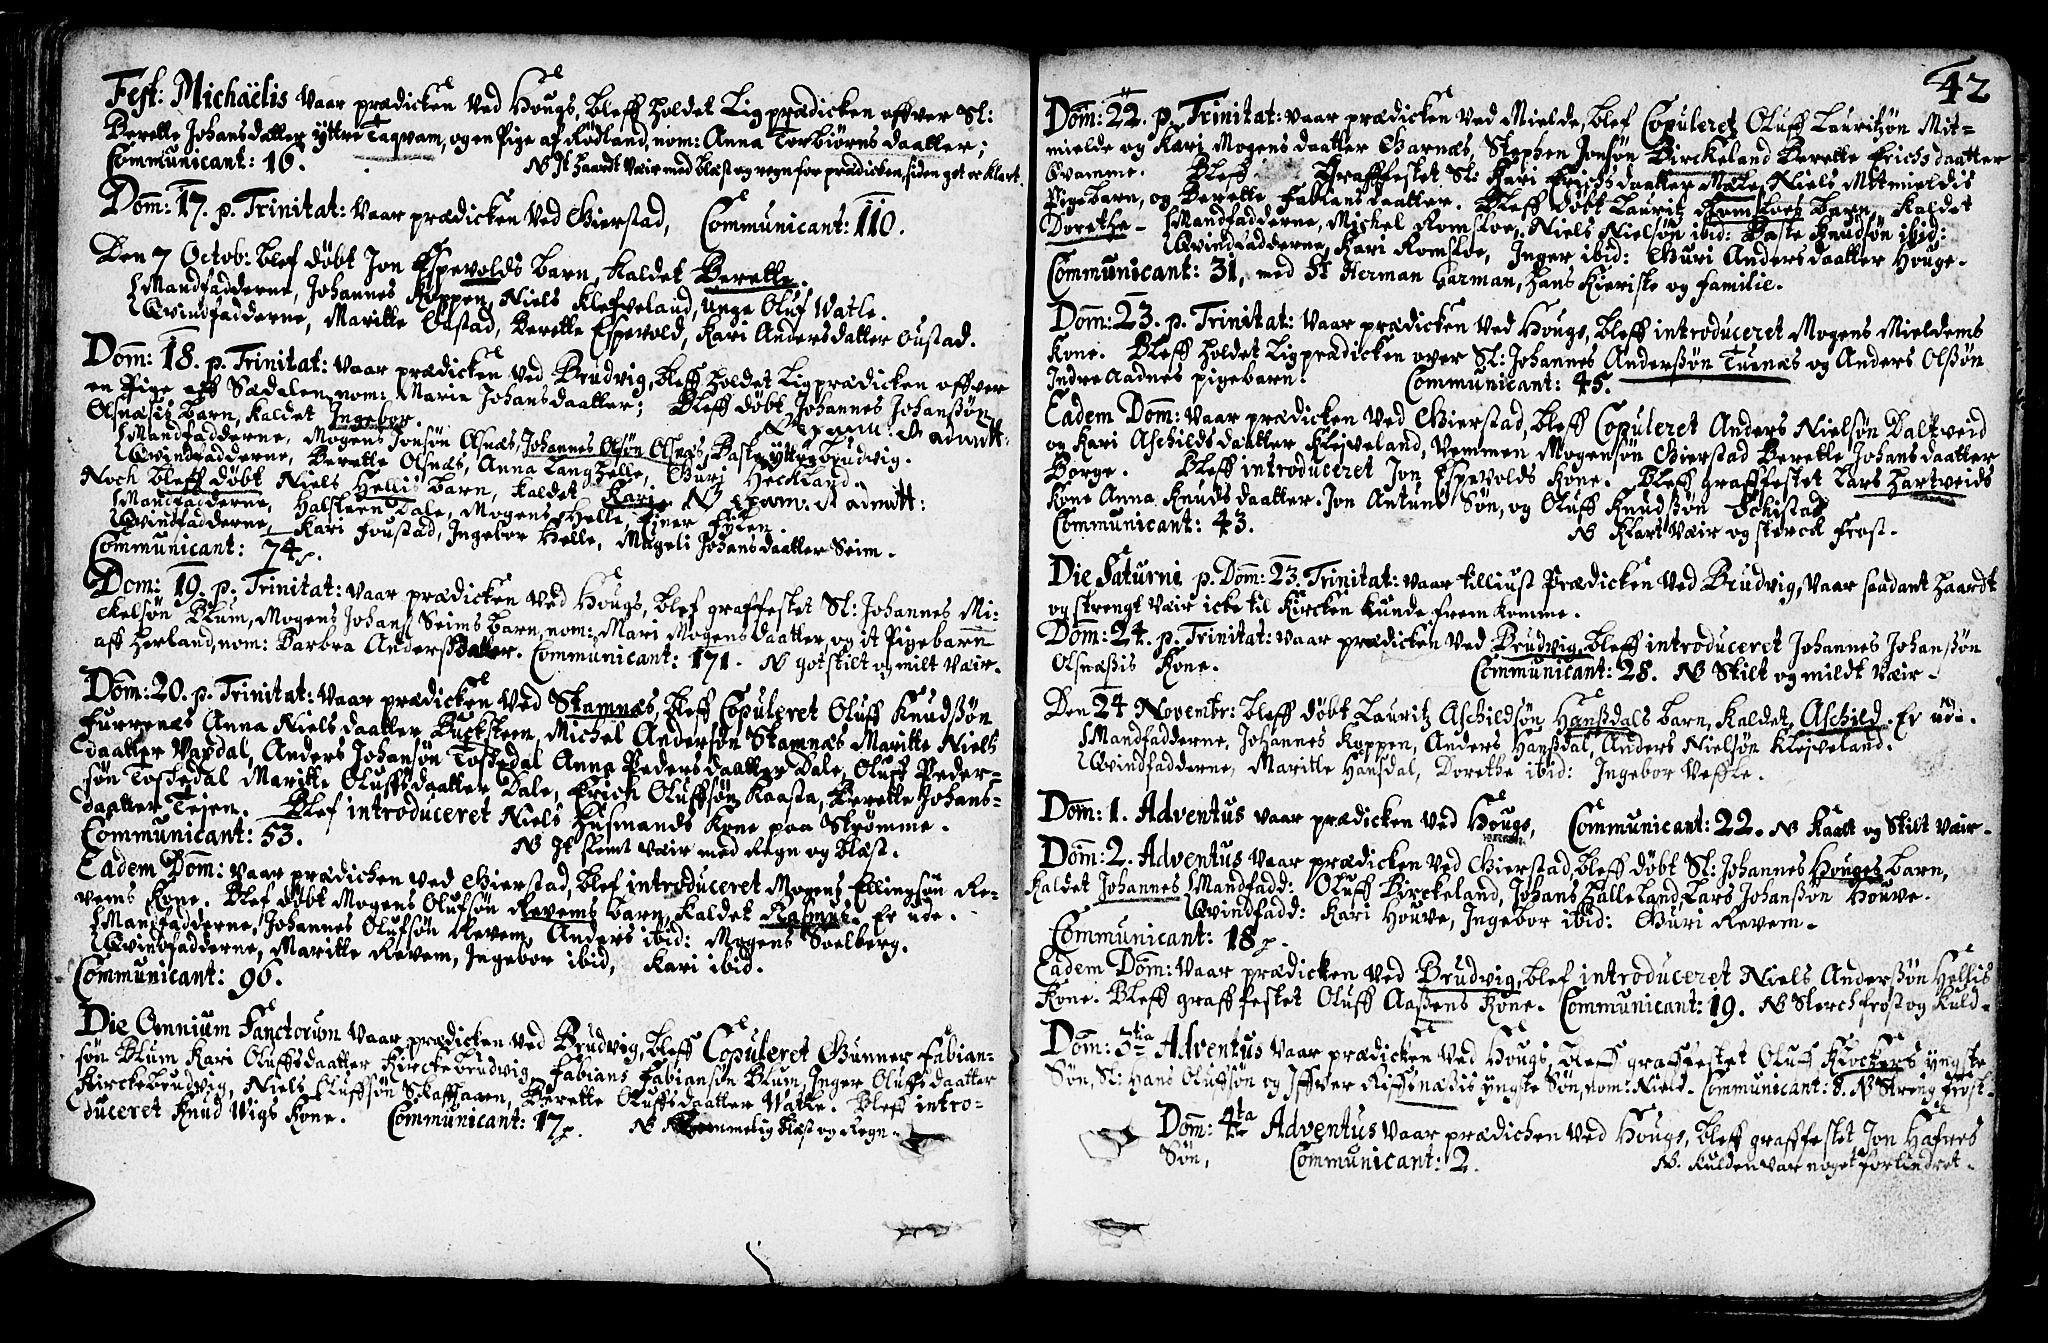 Fest: Michaëlis vaar prædicken ved Hougs, bleff holdet Ligprædicken offver Sl:
Berette Johansdatter yttre Taqvam, og en Pige af Rødland, nom: Anna Torbiørns daatter;
Communicant: 16. NB It haardt væir med blæst og regn for prædicken, siden got os Klart.
Dom: 17. p. Trinitat: vaar prædicken ved Gierstad, Communicant: 110.
Den 7 Octob: blef døbt Jon Espevolds barn, kaldet Berette.
Mandfadderne, Johannes Koppen, Niels Klefveland, Unge Oluf Watle.
Qvindfadderne, Maritte Oustad, Berette Espevold, Kari Andersdatter Oustad.
Dom: 18. p. Trinitat: vaar prædicken ved Brudvig, bleff holdet Ligprædicken offver
en Pige aff Sædalen, nom: Marin Johansdaatter; Bleff døbt Johannes Johanssøn
Olsnæsis barn, kaldet Ingebor. admitt:
Mandfadderne, Mogens Jonsøn Olsnæs, Johannes Olsøn Olsnæs, Baste yttrebrudvig.
Qvindfadderne, Berette Olsnæs, Anna Langhelle, Guri Heckland.
Noch bleff døbt Niels Helli barn, kaldet Kari. admitt:
Mandfadderne, Halsteen Dale, Mogens Helle, Einer Fylen.
Qvindfadderne, Kari Joustad, Ingebor Helle, Mageli Johansdaatter Seim.
Communicant: 74.
Dom: 19. p. Trinitat: vaar prædicken ved Hougs, blef graffestet Sl: Johannes Mi-
ckelsøn Blum, Mogens Johans Seims barn, nom: Mari Mogensdaatter, og it Pigebarn
aff Herland, nom: Barbra Anderssdatter. Communicant: 171. NB got stilt og milt væir.
Dom: 20. p. Trinitat: vaar prædicken ved Stamnæs, bleff Copuleret Oluff Knudssøn
Furrenæs Anna Nielsdaatter Bucksteen, Michel Andersøn Stamnæs Maritte Niels
daatter Vaxdal, Anders Johansøn Toskedal Anna Pedersdaatter Dale, Oluff Peder-
søn Toskedal Maritte Oluffsdaatter Dale, Erich Oluffsøn Kaasta, Berette Johans-
daatter Teigen. Blef introduceret Niels Husmands Kone paa Strømme.
Communicant: 53. NB It slemt væir med Regn og blæst.
Eadem Dom: vaar prædichen ved Gierstad, blef introduceret Mogens Ellingsøn Re-
vems Kone. Blef døbt Mogens Olufsøn Revems barn, kaldet Rasmus. Er ude.
Mandfadderne, Johannes Olufsøn Revem, Anders ibid: Mogens Soelberg.
Qvindfadderne, Maritte Revem, Ingebor ibid, Kari ibid.
Communicant: 96.
Die Omnium Sanctorum vaar prædicken ved Brudvig, bleff Copuleret Gunner Fabian-
søn Blum Kari Oluffsdaatter Kirckebrudvig, Fabians Fabiansøn Blum, Inger Oluffsdaatter
Kirckebrudvig, Niels Oluffsøn Skaffhaan, Berette Oluffsdaatter Watle. Bleff intro-
duceret Knud Wigs Kone. Communicant: 17. NB blæst og Regn.
42
Dom: 22. p. Trinitat: vaar prædicken ved Mielde, blef Copuleret Oluff Lauritzøn Mit-
mielde og Kari Mogensdaatter Garnæs, Stephen Jonsøn Birckeland Berette Erichsdaatter
Qvamme. Bleff Graffestet Sl: Kari Erichsdaatter Mæle, Niels Mitmieldis
Pigebarn, og Berette Fabiansdaatter. Bleff døbt Lauritz Romsloes barn, kaldet
Dorethe. Mandfadderne, Michel Romsloe, Niels Nielsøn ibid: Baste Knudsøn ibid:
Qvindfadderne, Kari Romsloe, Inger ibid: Guri Andersdaatter Houge.
Communicant: 31, med Sr Herman Garman, hans Kieriste og familie.
Dom: 23. p. Trinitat: vaar prædicken ved Hougs, bleff introduceret Mogens Mieldems
Kone. Bleff holdet Ligprædicken over Sl: Johannes Anderssøn Tunæs og Anders Olssøn
Indre Aadnes pigebarn. Communicant: 45.
Eadem Dom: vaar prædicken ved Gierstad, bleff Copuleret Anders Nielsøn Daltveid
og Kari Aschildsdaatter Kleiveland, Vemmen Mogensøn Gierstad Berette Johansdaatter
Borge. Bleff introduceret Jon Espevolds Kone. Bleff graffestet Lars Hartveids
Kone Anna Knudsdaatter. Jon Antuns Søn, og Oluff Knudssøn Tchistad
Communicant: 43. NB Klart væir og sterck Frost.
Die Saturni p. Dom: 23. Trinitat: vaar tilliust Prædicken ved Brudvig, vaar saadant haardt
og strengt væir icke til Kircken kunde frem komme.
Dom: 24. p. Trinitat: vaar prædicken ved Brudvig, bleff introduceret Johannes Johanssøn
Olsnæssis Kone. Communicant: 28. NB Stilt og mildt væir.
Den 24 Novembr: bleff døbt Lauritz Aschildsøn Hanssdals barn, kaldet, Aschild. Er ude.
Mandfadderne, Johannes Koppen, Anders Hanssdal, Anders Nielsøn Klefveland.
Qvindfadderne, Maritte Hansdal, Dorethe ibid: Ingebor Veffle.
Dom: 1. Adventus vaar prædicken ved Hougs, Communicant: 22. NB Kaalt og Stilt væir.
Dom: 2. Adventus vaar prædicken ved Gierstad, bleff døbt Sl: Johannes Houges barn,
kaldet Johannes Mandfadd: Oluff Borckeland, Johans Halleland, Lars Johanssøn Houve.
Qvindfadd: Kari Houve, Ingebor ibid: Guri Revem.
Communicant: 18.
Eadem Dom: vaar prædicken ved Brudvig, blef introduceret Niels Anderssøn Hellis
Kone. Bleff graffestet Oluff Aassens Kone. Communicant: 19. NB Sterch frost og Kuld.
Dom: 3tia Adventus vaar prædicken ved Hougs, bleff graffestet Oluff Klockers yngste
Søn, Sl: Hans Oluffsøn og Iffver Riffsnæssis yngste Søn, nom: Nield. Communicant: 8. NB Streng Frost.
Dom: 4ta Adventus vaar prædichen ved Hougs, bleff graffestet Jon Hafnes
Søn, Communicant: 2. NB. Kulden var noget forlindret.